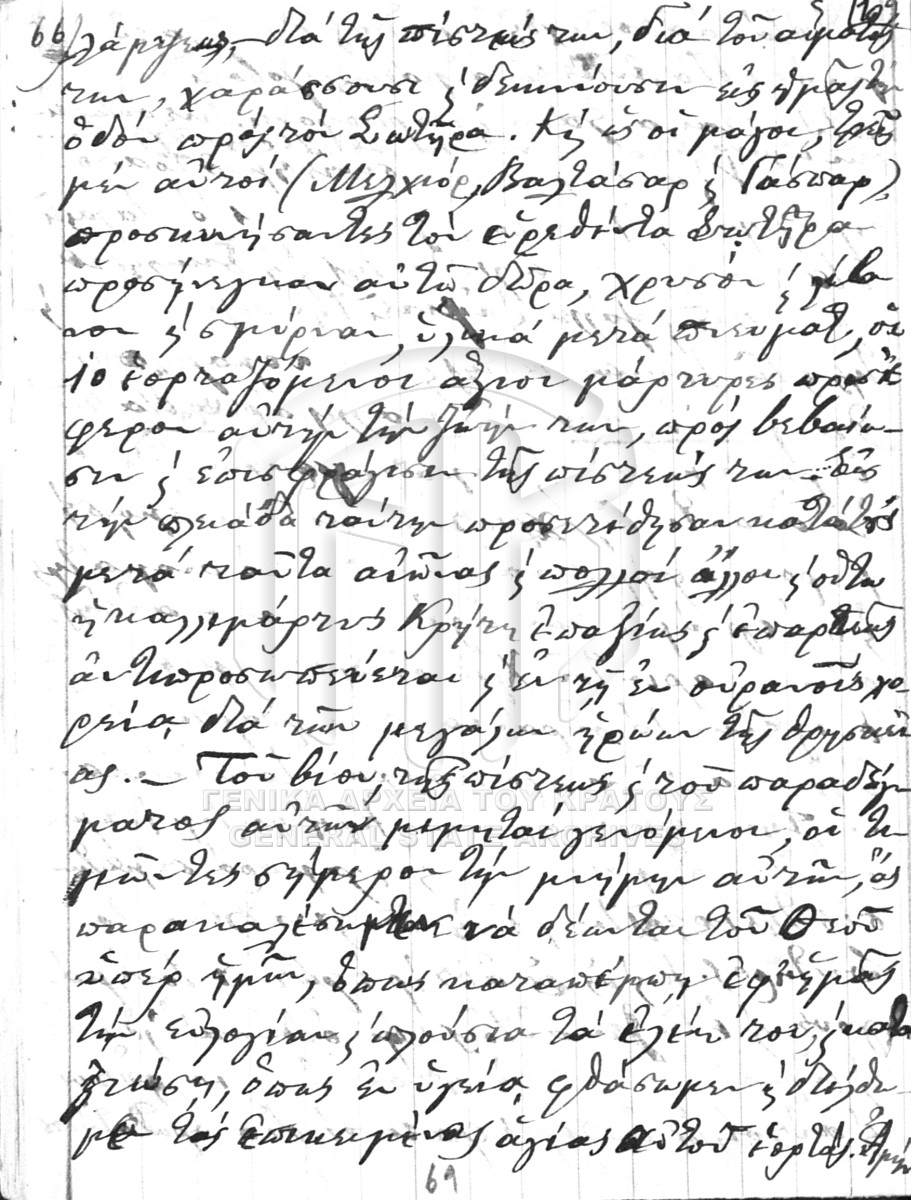 66
λάμψεως, διά τῆς πίστεώς των, διά τοῦ αἵματός
των, χαράσσουσι ϗ δεικνύουσιν εἰς ἡμᾶς τήν
ὁδόν πρός τόν Σωτῆρα. Κϗ ὡς οἱ μάγοι, τρεῖς
μέν αὐτοί (Μελχιόρ, Βαλτάσαρ ϗ Γάσπαρ),
προσκυνήσαντες τόν εὑρεθέντα Σωτῆρα
προσήνεγκαν αὐτῷ δῶρα, χρυσόν ϗ λίβα
νον ϗ σμύρναν, ὑλικά μετά πνευματ, οἱ
10 ἑορταζόμενοι ἅγιοι μάρτυρες προσέ
φερον αὐτήν τήν ζωήν των, πρός βεβαίω-
σιν ϗ ἐπισφράγισιν τῆς πίστεώς των. Εἰς
τήν πλειάδα ταύτην προσετέθησαν κατά τούς
μετά ταῦτα αἰῶνας ϗ πολλοί ἄλλοι ϗ οὕτω
ἡ καλλιμάρτυς Κρήτη ἐπαξίως ϗ ἐπαρκῶς
ἀντιπροσωπεύεται ϗ ἐν τῇ ἐν οὐρανοῖς χο-
ρείᾳ διά τῶν μεγάλων ἡρώων τῆς θρησκεί
ας. — Τοῦ βίου, τῆς πίστεως ϗ τοῦ παραδείγ
ματος αὐτῶν μιμηταί γενόμενοι, οἱ τι
μῶντες σήμερον τήν μνήμην αὐτῶν, ἄς
παρακαλέσωμεν νά δέωνται τοῦ Θεοῦ
ὑπέρ ἡμῶν, ὅπως καταπέμπῃ ἐφ' ἡμᾶς
τήν εὐλογίαν ϗ πλούσια τά ἐλέη του, ϗ κατα
ξιώσῃ, ὅπως ἐν ὑγείᾳ φθάσωμεν ϗ διέλθω
με τάς ἐπικειμένας ἁγίας αὐτοῦ ἑορτάς. Ἀμήν
69
ΓΕΝΙΚΑ ΑΡΧΕΙΑ ΤΟΥ ΚΡΑΤΟΥΣ
GENERAL STATE ARCHIVES